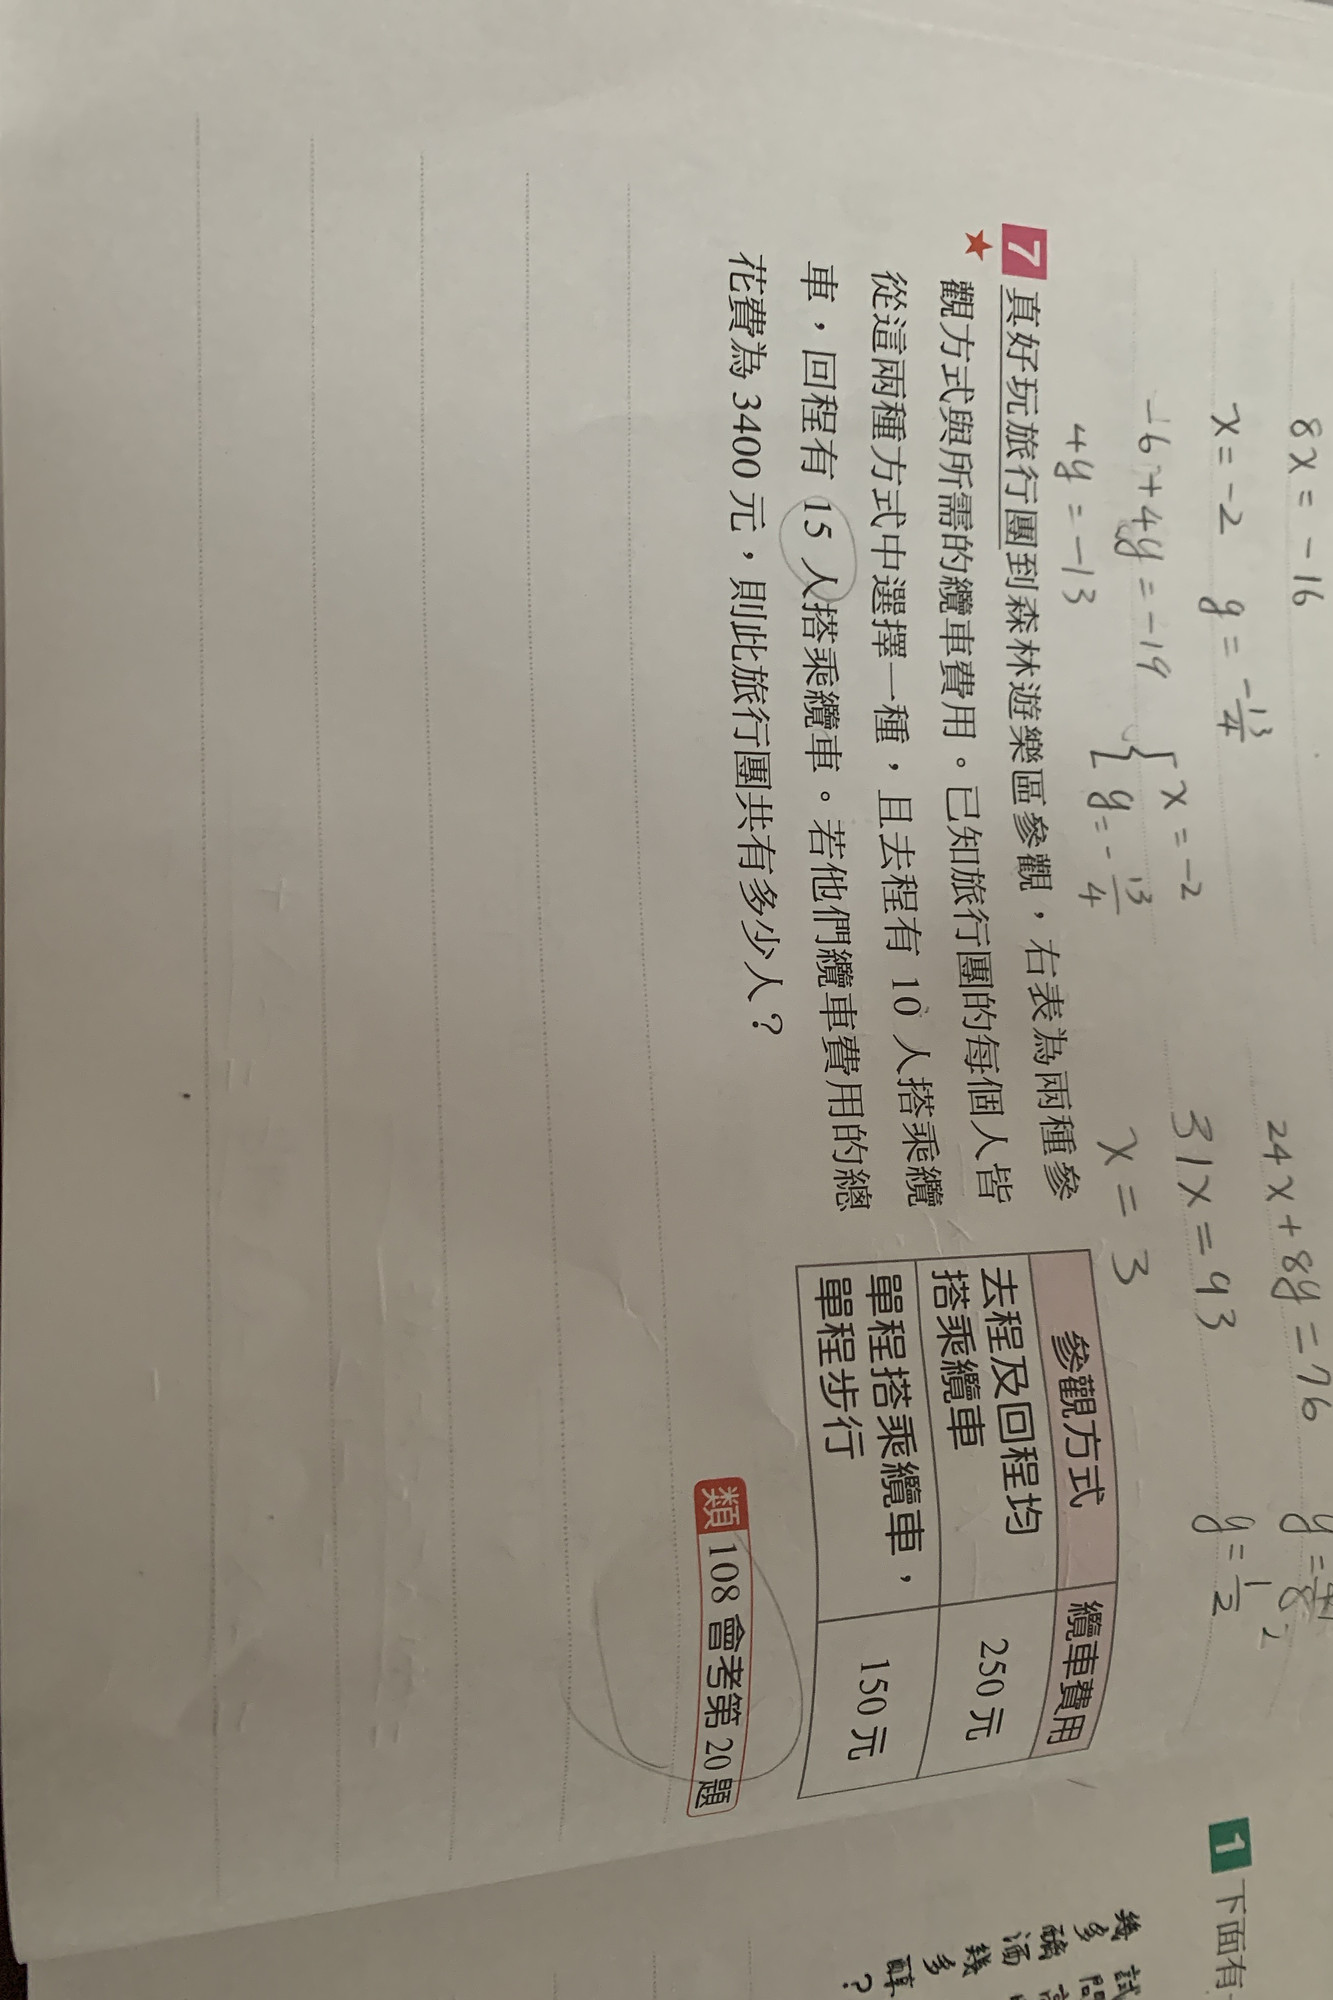 8x = -16
x = -2 y = -13/4
-6 + 4y = -19
4y = -13
{ x = -2
y = -13/4
24x + 8y = 76
31x = 93
x = 3
y = 1/2
7 真好玩旅行團到森林遊樂區參觀,右表為兩種參
★ 觀方式與所需的纜車費用。已知旅行團的每個人皆
從這兩種方式中選擇一種,且去程有 10 人搭乘纜
車,回程有 15 人搭乘纜車。若他們纜車費用的總
花費為 3400 元,則此旅行團共有多少人?
參觀方式 纜車費用
去程及回程均
搭乘纜車 250 元
單程搭乘纜車,
單程步行 150 元
類 108 會考第 20 題
1 下面有
試問
幾多
酒幾多
醇?